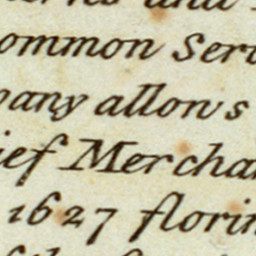 ommon Ser
pany allows
ief Mercha
1627 florin